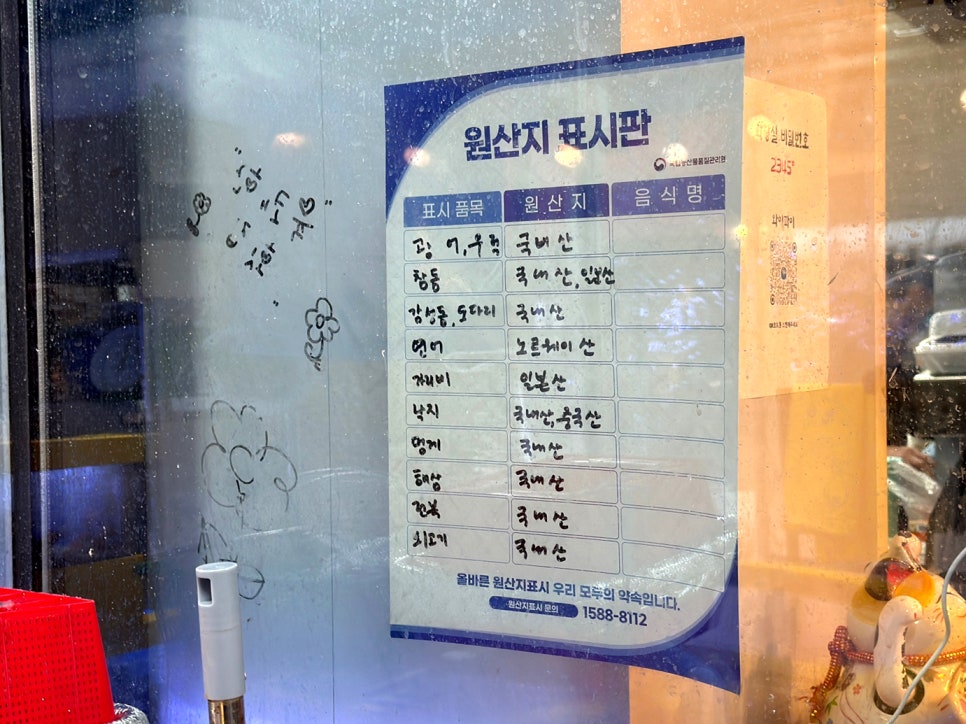 원산지 표시판
국립농산물품질관리원
표시 품목 원 산 지 음 식 명
광어,우럭 국내산
참돔 국내산,일본산
감성돔,도다리 국내산
연어 노르웨이산
가리비 일본산
낙지 국내산,중국산
멍게 국내산
해삼 국내산
전복 국내산
쇠고기 국내산
올바른 원산지표시 우리 모두의 약속입니다.
원산지표시 문의 1588-8112
화장실 비밀번호
2345*
와이파이